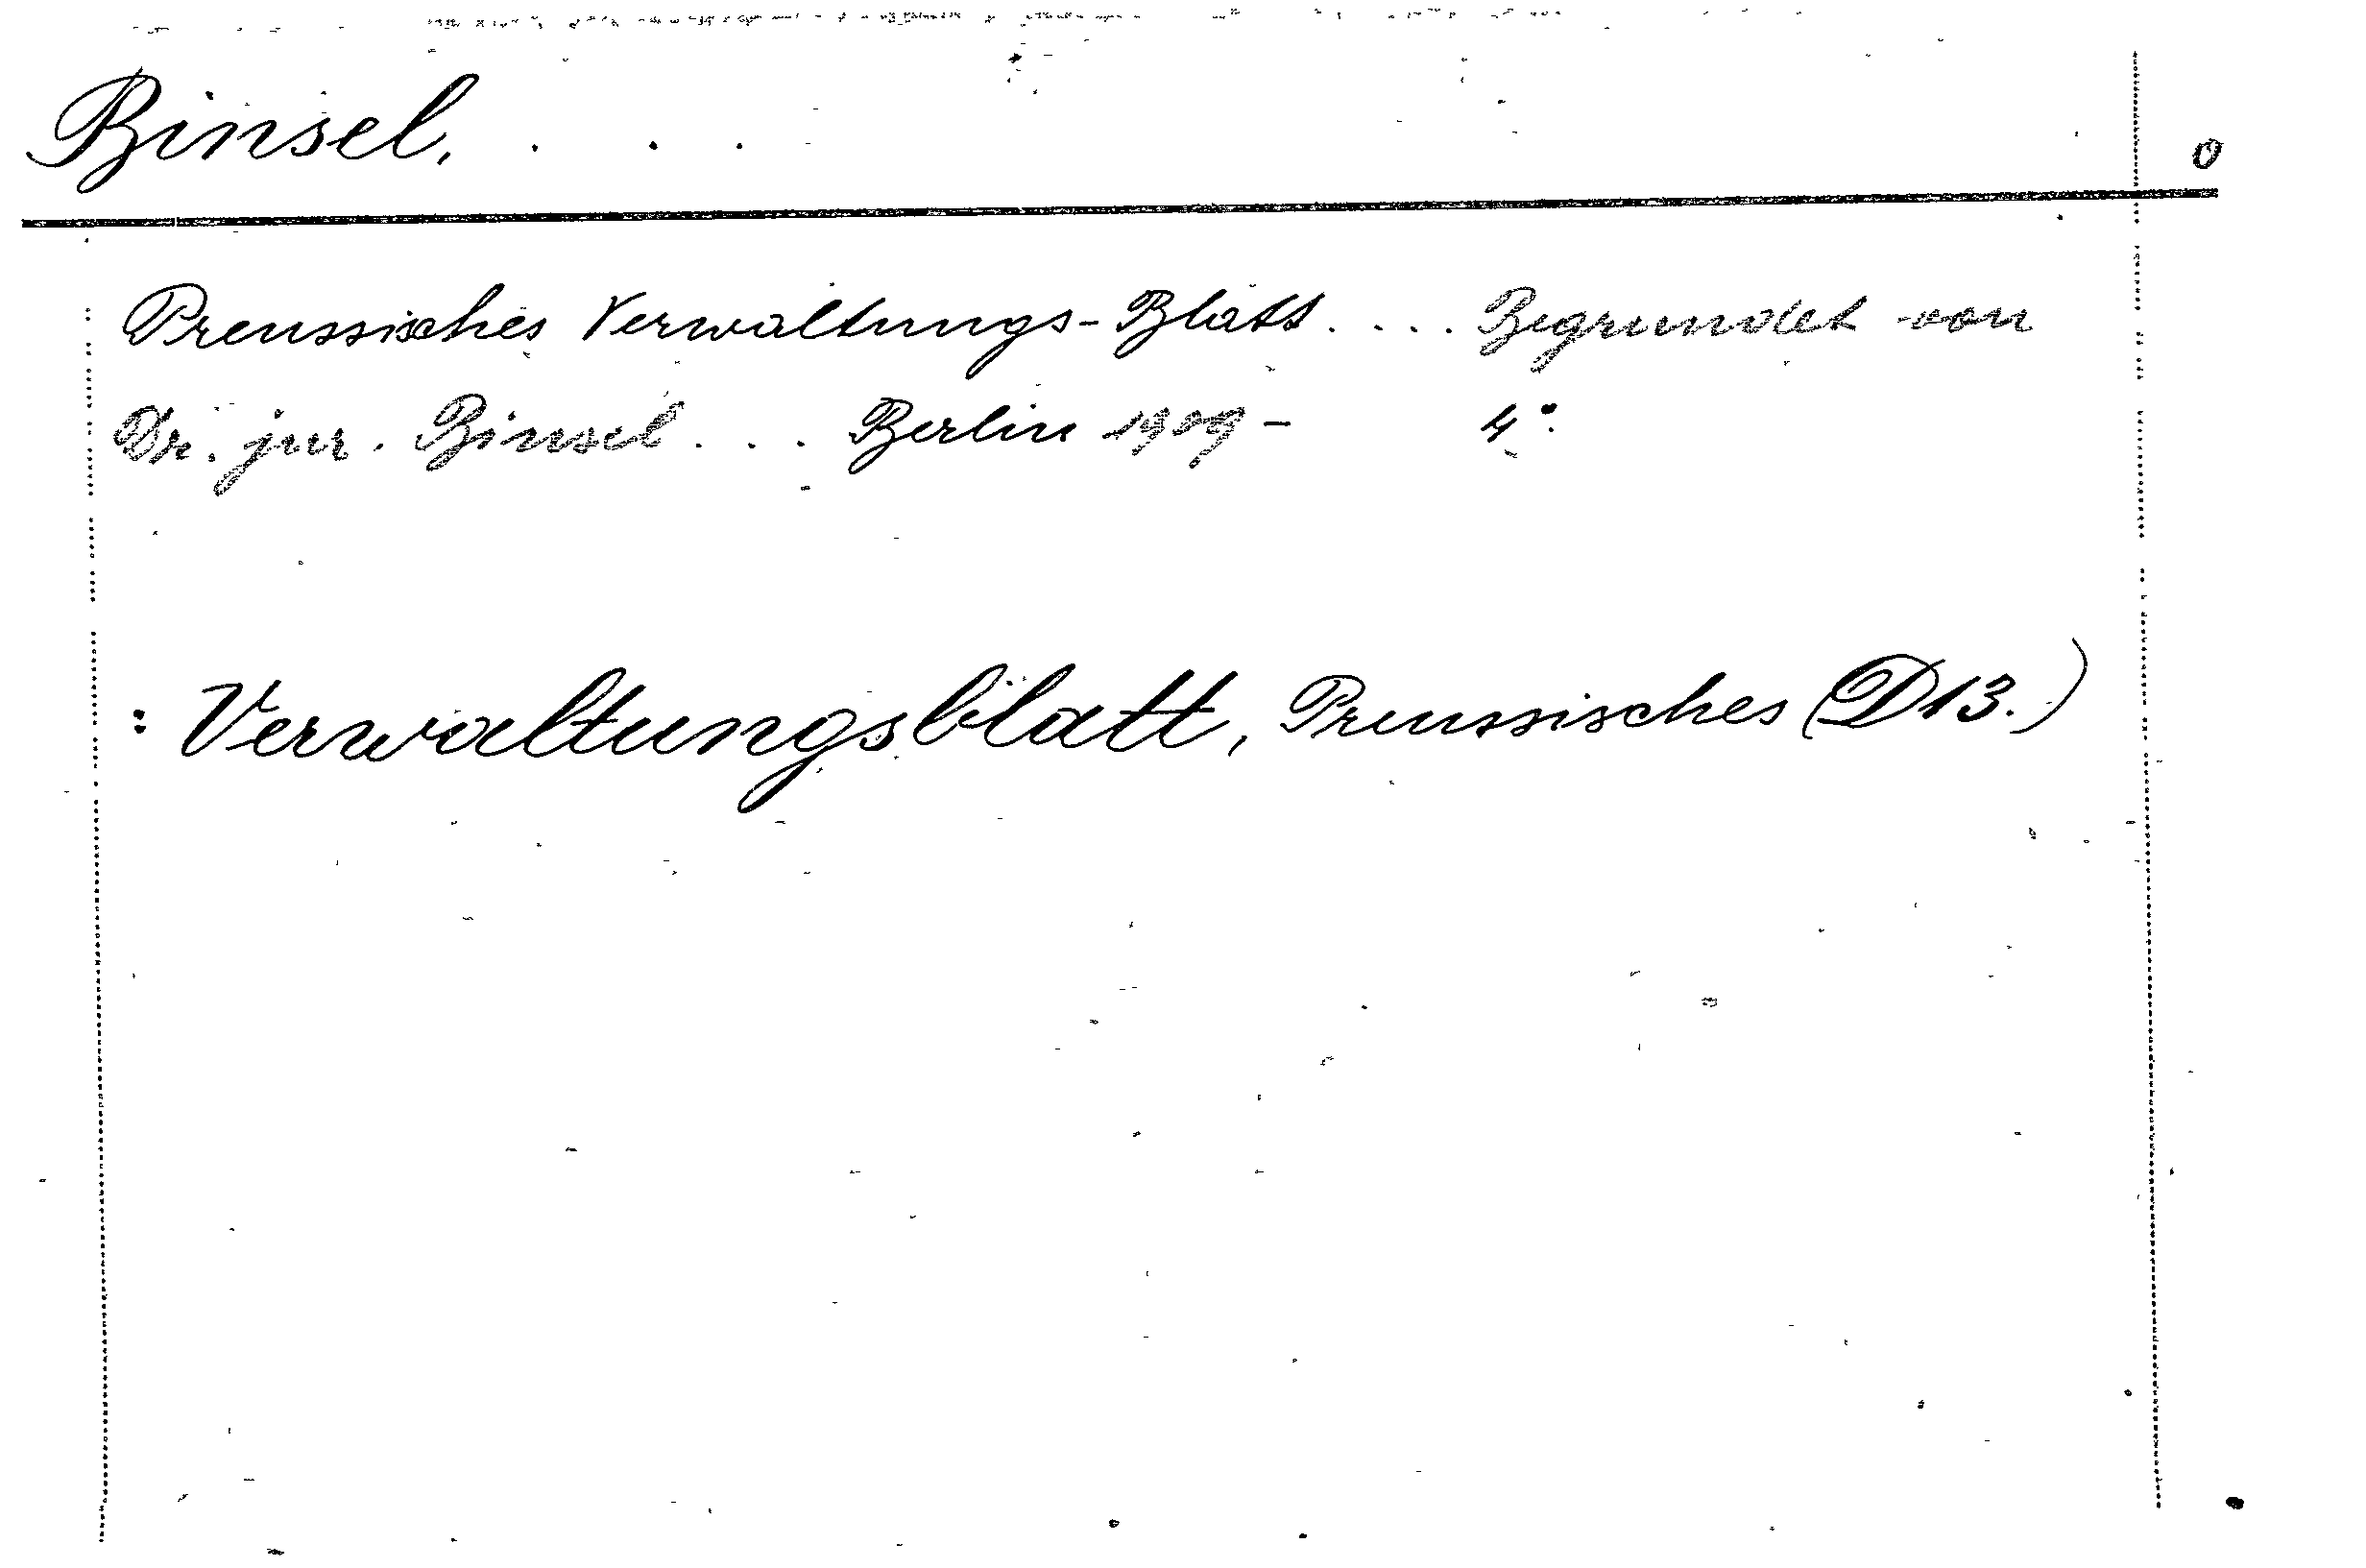 Binsel. . . . 0
Preussisches Verwaltungs-Blatt. . . . Begrundet von
Dr. jur. Binsel . . . Berlin 1909 - 4°.
: Verwaltungsblatt, Preussisches (D13.)